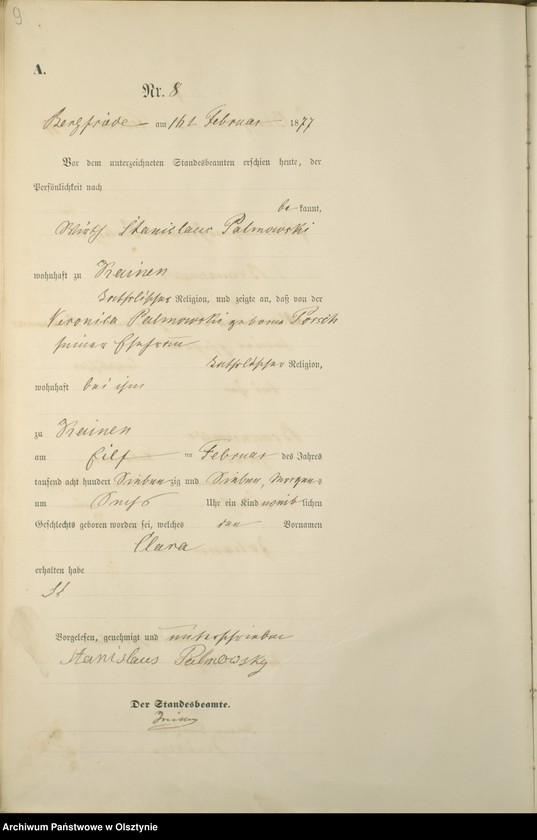 9
A.
Nr. 8
Bergfriede am 16t Februar 1877
Vor dem unterzeichneten Standesbeamten erschien heute, der
Persönlichkeit nach
be kannt,
Wirth Stanislaus Palmowski
wohnhaft zu Kainen
katholischer Religion, und zeigte an, daß von der
Veronica Palmowski geborne Poesch
seiner Ehefrau
katholischer Religion,
wohnhaft bei ihm
zu Kainen
am Eilf ten Februar des Jahres
tausend acht hundert Sieben zig und Sieben, Morgens
um Sechs Uhr ein Kind weib lichen
Geschlechts geboren worden sei, welches den Vornamen
Clara
erhalten habe
Vorgelesen, genehmigt und unterschrieben
Stanislaus Palmowsky
Der Standesbeamte.
Archiwum Państwowe w Olsztynie